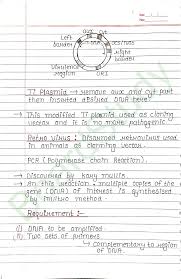 Aux Cut
Left border
ocs/nos
Right border
Virulence Region
ORI
TI Plasmid → Remove aux and cut part then inserted desired DNA here?
→ This modified TI plasmid used as cloning vector and it is no more pathogenic
Retro Virus: Disarmed retrovirus used in animals as cloning vector.
PCR (Polymerase Chain Reaction).
→ Discovered by Kary Mullis
→ In this reaction, multiple copies of the gene (DNA) of interest is synthesised by invitro method
Requirement :-
(i) DNA to be amplified
(ii) Two sets of primers
→ Complementary to region of DNA